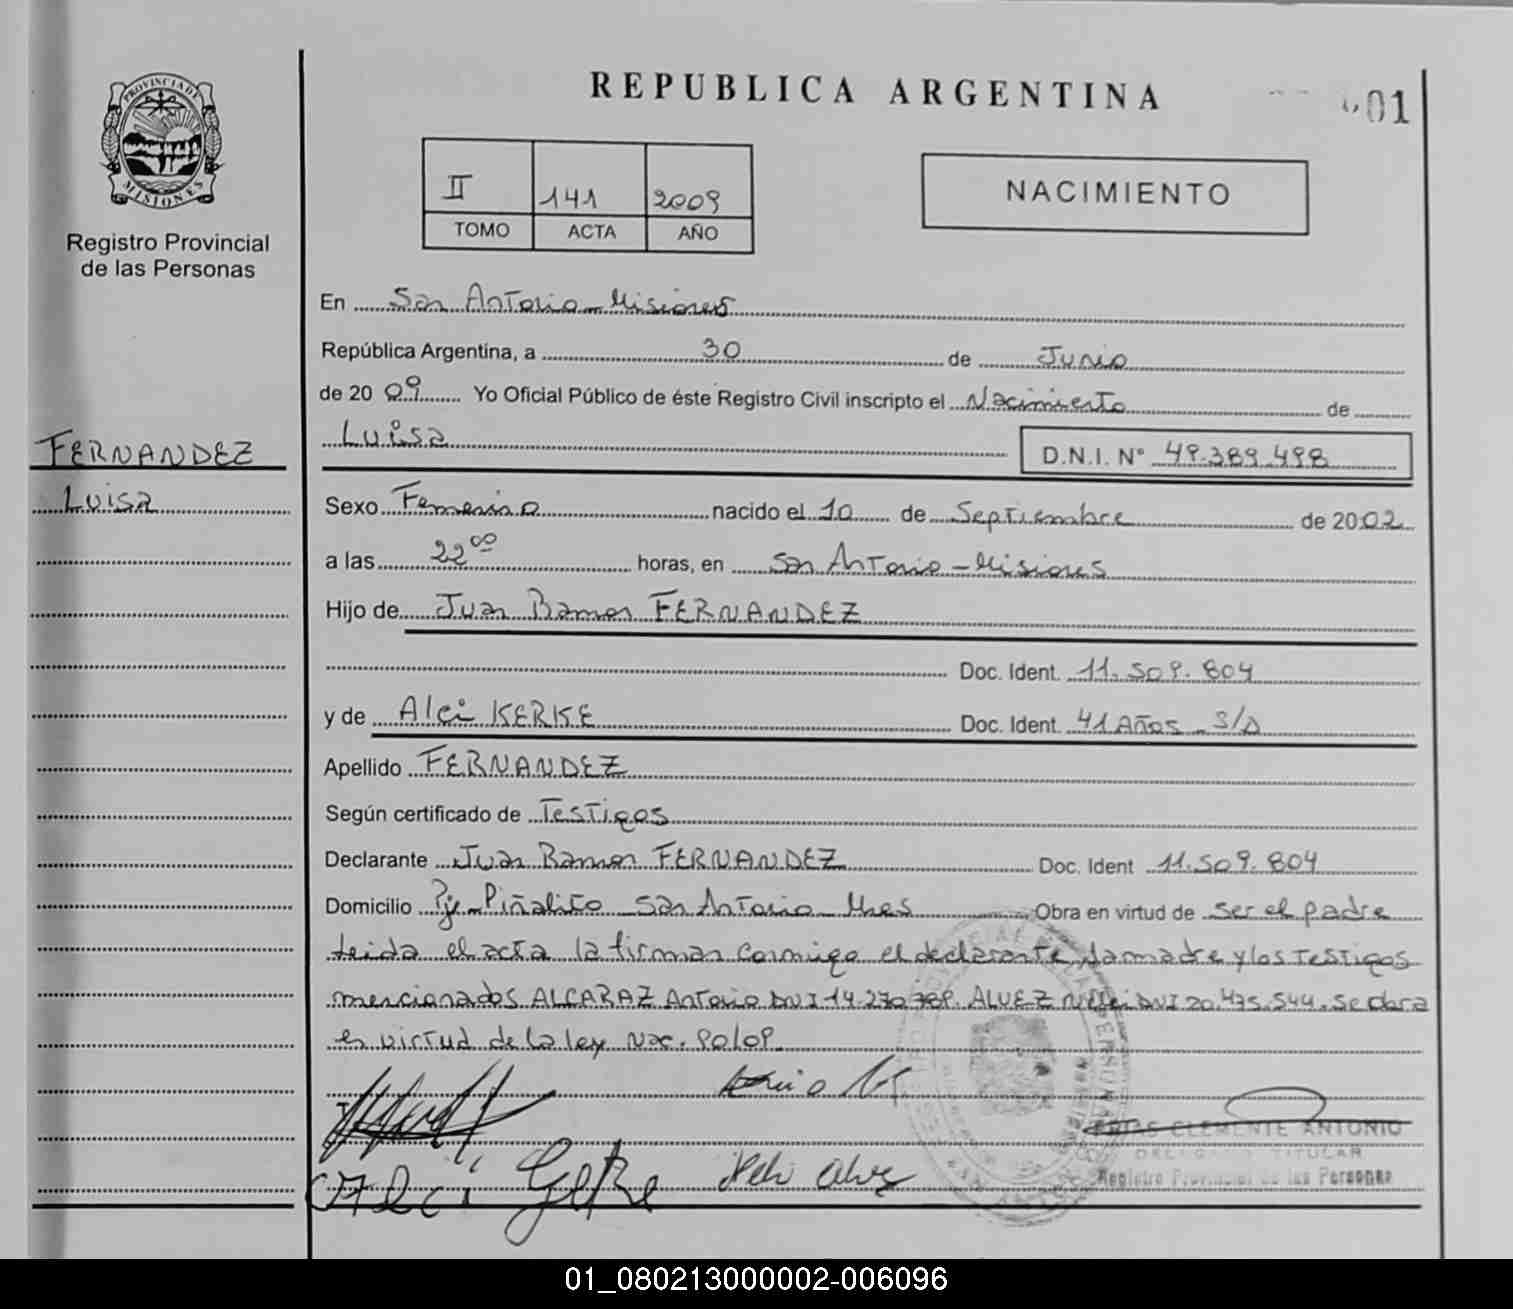 PROVINCIA DE
MISIONES
Registro Provincial
de las Personas
REPUBLICA ARGENTINA
01
II 141 2009
TOMO ACTA AÑO
NACIMIENTO
En San Antonio - Misiones
República Argentina, a 30 de Junio
de 2009 Yo Oficial Público de éste Registro Civil inscripto el Nacimiento de
Luisa
D.N.I. N° 49.389.498
FERNANDEZ
Luisa
Sexo Femenino nacido el 10 de Septiembre de 2002
a las 22 00 horas, en San Antonio - Misiones
Hijo de Juan Ramon FERNANDEZ
Doc. Ident. 11.509.804
y de Alci KERKE Doc. Ident. 41 Años - S/D
Apellido FERNANDEZ
Según certificado de Testigos
Declarante Juan Ramon FERNANDEZ Doc. Ident 11.509.804
Domicilio Pje - Piñalito San Antonio - Mnes Obra en virtud de ser el padre
leida el acta la firman conmigo el declarante, la madre y los Testigos
mencionados ALCARAZ Antonio DNI 14.270. ALVEZ DNI 20.475.544. Se
en virtud de la ley Nac. 90/09.
CLEMENTE ANTONIO
DELEGADO TITULAR
Registro Provincial de las Personas
01_080213000002-006096